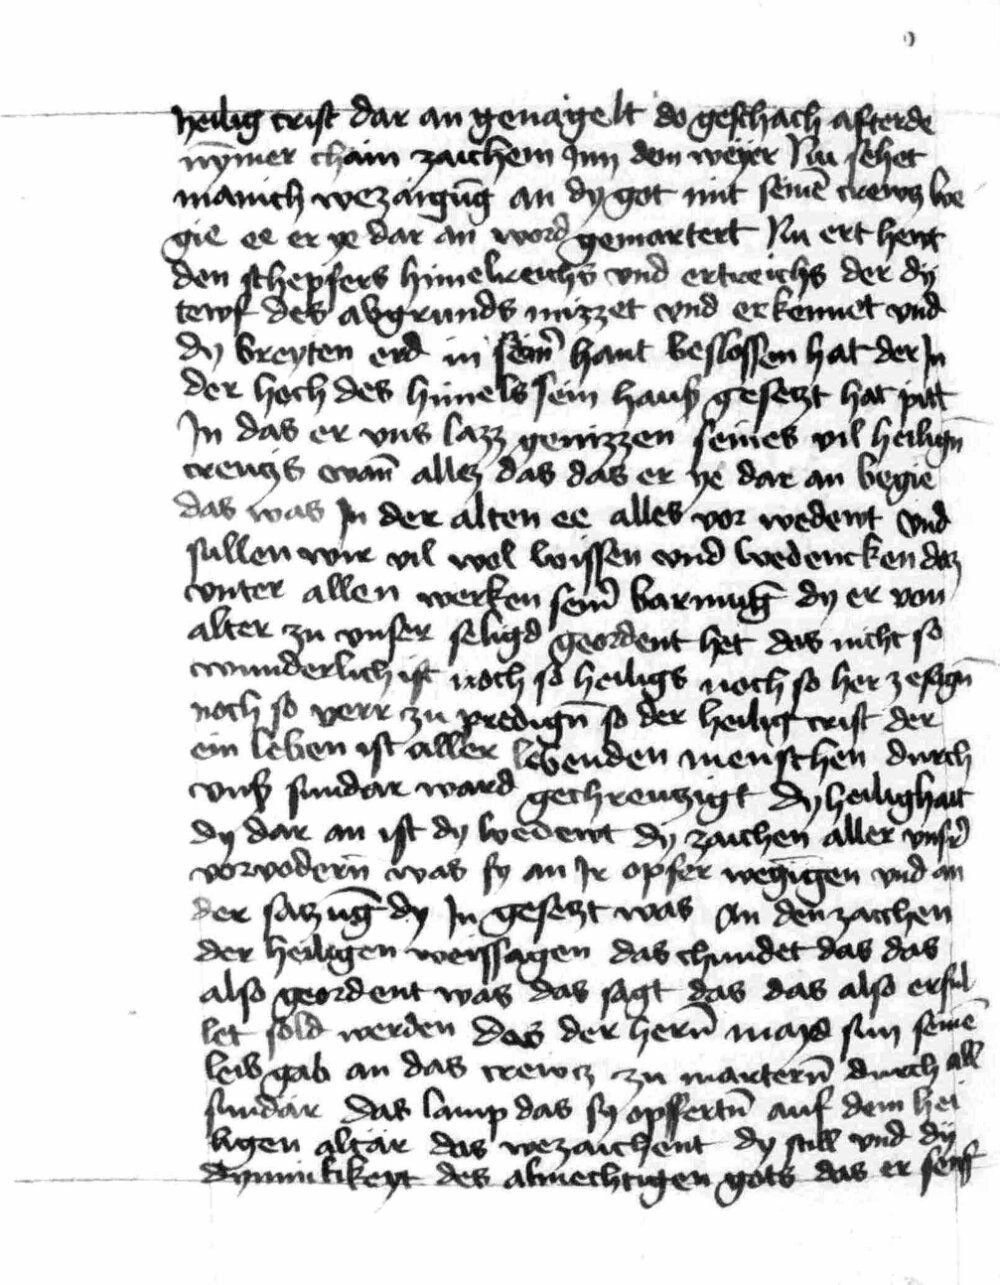 heilig crist dar an genagelt do geschach afterde
nymer chain zaichem Inn dem weyer Nu sehet
manich wezaigūg an dy got mit seinē crewtz be
gie ee er ye dar an word gemartert Nu ert hewt
den schepfers himelreichs vnd ertreichs der dy
tewf des abgrunds mizzet vnd erkennet vnd
dy breyten erd in sein̄ hant beslossen hat der In
der hoch des himels sein haus gesetzt hat pitt
In das er vns lazz genizzen seines vil heilign̄
creucis wan̄ allez das das er ye dar an begie
das was In der alten ee alles vor wedewt Vnd
sullen wir vil wol wissen vnd bedencken daz
vnter allen werken sein̄ barmūg dy er von
alter zu vnser seligd geordent het das nicht so
wunderlich ist noch so heiligs noch so her zesagn̄
noch so verr zu predign̄ so der heilig crist der
ein leben ist aller lebenden menschen durch
vns sundar ward gechreutzigt Dy heilighait
dy dar an ist dy bedewt dy zaichen aller vnsr̄
vorvodern̄ was sy an Ir opfer wegingen vnd an
der satzūg dy In gesetzt was An den zaichen
der heiligen weissagen das chundet das das
also geordent was das sagt das das also erful
let sold werden das der hern̄ mayd sun seinē
leib gab an das crewcz zu martern̄ durch all
sundar Das lamp das sy opffertn̄ auf dem hei
ligen altar das wezaichent dy still vnd dy
dyemutikeyt des almechtigen gots das er senf